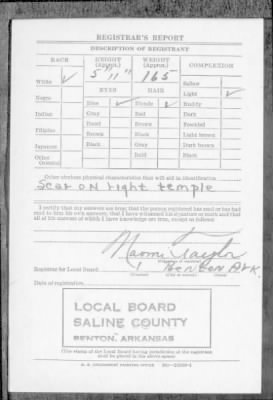 REGISTRAR'S REPORT
DESCRIPTION OF REGISTRANT
RACE HEIGHT (Approx.) WEIGHT (Approx.) COMPLEXION
5' 11" 165
White ✓ EYES HAIR Sallow
Light ✓
Negro Blue ✓ Blonde ✓ Ruddy
Indian Gray Red Dark
Hazel Brown Freckled
Filipino Brown Black Light brown
Japanese Black Gray Dark brown
Other Bald Black
Oriental
Other obvious physical characteristics that will aid in identification
Scar on right temple
I certify that my answers are true; that the person registered has read or has had
read to him his own answers; that I have witnessed his signature or mark and that
all of his answers of which I have knowledge are true, except as follows:
Naomi Taylor
Registrar for Local Board 1 Benton Ark.
Date of registration
LOCAL BOARD
SALINE COUNTY
BENTON, ARKANSAS
(The stamp of the Local Board having jurisdiction of the registrant
shall be placed in the above space)
U. S. GOVERNMENT PRINTING OFFICE